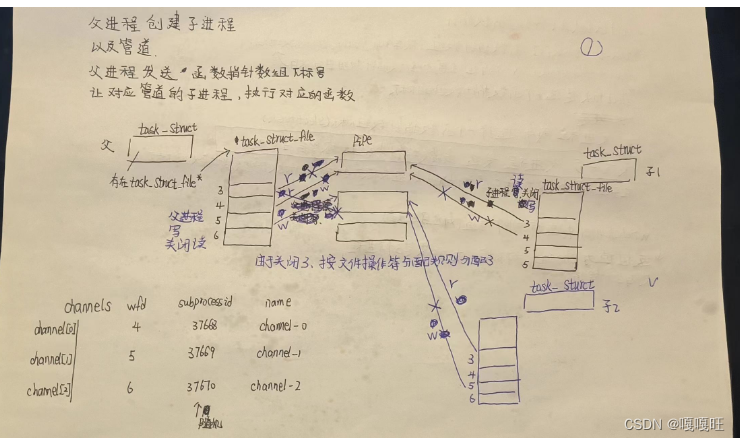 父进程 创建子进程
以及管道.
①
父进程 发送 函数指针数组下标号
让对应管道的子进程, 执行对应的函数
父
task_struct
*task_struct_file
PiPe
task_struct
子1
存在task_struct_file*
r
w
r
w
读
子进程 关闭
写
task_struct_file
3
4
5
6
父进程
写
关闭读
w
3
4
5
由于关闭3、按文件操作符分配规则分配3
task_sturct
子2
r
w
3
4
5
6
channels wfd subprocessid name
channel[0] 4 37668 channel-0
channel[1] 5 37669 channel-1
channel[2] 6 37670 channel-2
CSDN @嘎嘎旺